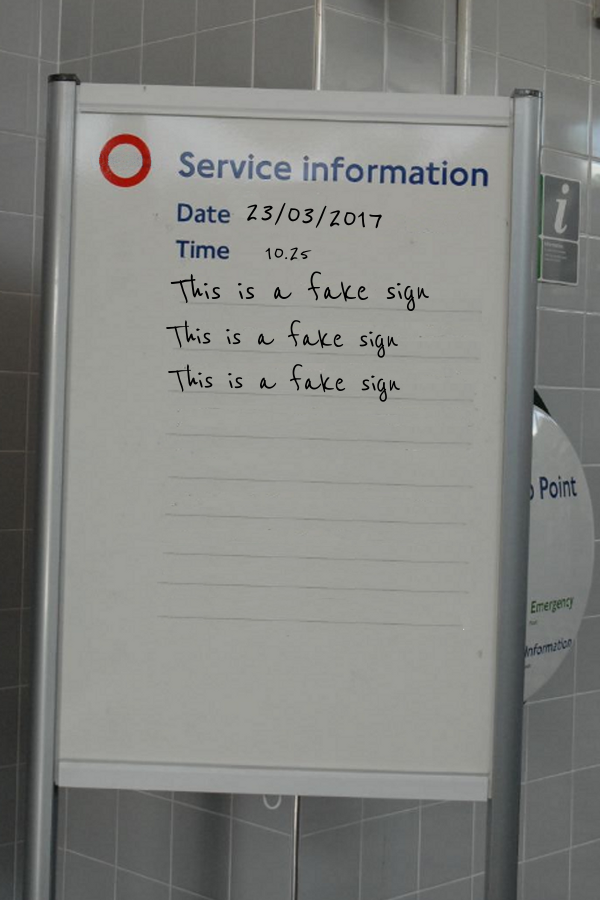 Service information
Date 23/03/2017
Time 10.25
This is a fake sign
This is a fake sign
This is a fake sign
i
Point
Emergency
Information